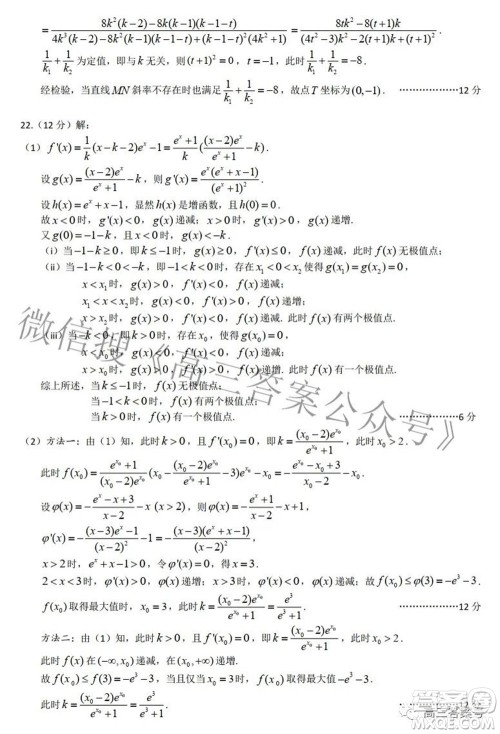 = \frac{8k^2(k-2)-8k(k-1)(k-1-t)}{4k^3(k-2)-8k^2(k-1)(k-1-t)+(k-1-t)^2(4k^2+1)} = \frac{8tk^2-8(t+1)k}{(4t^2-3)k^2-2(t+1)k+(t+1)^2}.
\frac{1}{k_1}+\frac{1}{k_2} 为定值，即与 k 无关，则 (t+1)^2=0，t=-1，此时 \frac{1}{k_1}+\frac{1}{k_2}=-8.
经检验，当直线 MN 斜率不存在时也满足 \frac{1}{k_1}+\frac{1}{k_2}=-8，故点 T 坐标为 (0,-1). ……………12 分
22.（12 分）解：
（1） f'(x)=\frac{1}{k}(x-k-2)e^x-1=\frac{e^x+1}{k}(\frac{(x-2)e^x}{e^x+1}-k).
设 g(x)=\frac{(x-2)e^x}{e^x+1}-k，则 g'(x)=\frac{e^x(e^x+x-1)}{(e^x+1)^2}.
设 h(x)=e^x+x-1，显然 h(x) 是增函数，且 h(0)=0.
故 x<0 时，g'(x)<0，g(x) 递减；x>0 时，g'(x)>0，g(x) 递增.
又 g(0)=-1-k，且 x<0 时，g(x)<-k.
（i）当 -1-k≥0，即 k≤-1 时，g(x)≥0，f'(x)≤0，f(x) 递减，此时 f(x) 无极值点；
（ii）当 -1-k<0<-k，即 -1<k<0 时，存在 x_1<0<x_2 使得 g(x_1)=g(x_2)=0，
x<x_1 时，g(x)>0，f'(x)<0，f(x) 递减；
x_1<x<x_2 时，g(x)<0，f'(x)>0，f(x) 递增；
x>x_2 时，g(x)>0，f'(x)<0，f(x) 递减. 此时 f(x) 有两个极值点；
（iii）当 -k<0，即 k>0 时，存在 x_0，使得 g(x_0)=0，
x<x_0 时，g(x)<0，f'(x)<0，f(x) 递减；
x>x_0 时，g(x)>0，f'(x)>0，f(x) 递增. 此时 f(x) 有一个极值点；
综上所述，当 k≤-1 时，f(x) 无极值点；
当 -1<k<0 时，f(x) 有两个极值点；
当 k>0 时，f(x) 有一个极值点. ……………6 分
（2）方法一：由（1）知，此时 k>0，且 f'(x_0)=0，即 k=\frac{(x_0-2)e^{x_0}}{e^{x_0}+1}，此时 x_0>2.
此时 f(x_0)=\frac{e^{x_0}+1}{(x_0-2)e^{x_0}}(x_0-3-\frac{(x_0-2)e^{x_0}}{e^{x_0}+1})e^{x_0}-x_0=-\frac{e^{x_0}-x_0+3}{x_0-2}-x_0.
设 φ(x)=-\frac{e^x-x+3}{x-2}-x (x>2)，则 φ(x)=-\frac{e^x+1}{x-2}-x+1，
φ'(x)=-\frac{(x-3)e^x-1}{(x-2)^2}-1=-\frac{(x-3)(e^x+x-1)}{(x-2)^2}，
x>2 时，e^x+x-1>0，令 φ'(x)=0，得 x=3.
2<x<3 时，φ'(x)>0，φ(x) 递增；x>3 时，φ'(x)<0，φ(x) 递减；故 f(x_0)≤φ(3)=-e^3-3.
f(x_0) 取得最大值时，x_0=3，此时 k=\frac{(x_0-2)e^{x_0}}{e^{x_0}+1}=\frac{e^3}{e^3+1}. ……………12 分
方法二：由（1）知，此时 k>0，且 f'(x_0)=0，即 k=\frac{(x_0-2)e^{x_0}}{e^{x_0}+1}，此时 x_0>2.
此时 f(x) 在 (-∞,x_0) 递减，在 (x_0,+∞) 递增.
故 f(x_0)≤f(3)=-e^3-3，当且仅当 x_0=3 时，f(x_0) 取得最大值 -e^3-3.
此时 k=\frac{(x_0-2)e^{x_0}}{e^{x_0}+1}=\frac{e^3}{e^3+1}.
微信搜《高三答案公众号》
高三答案号